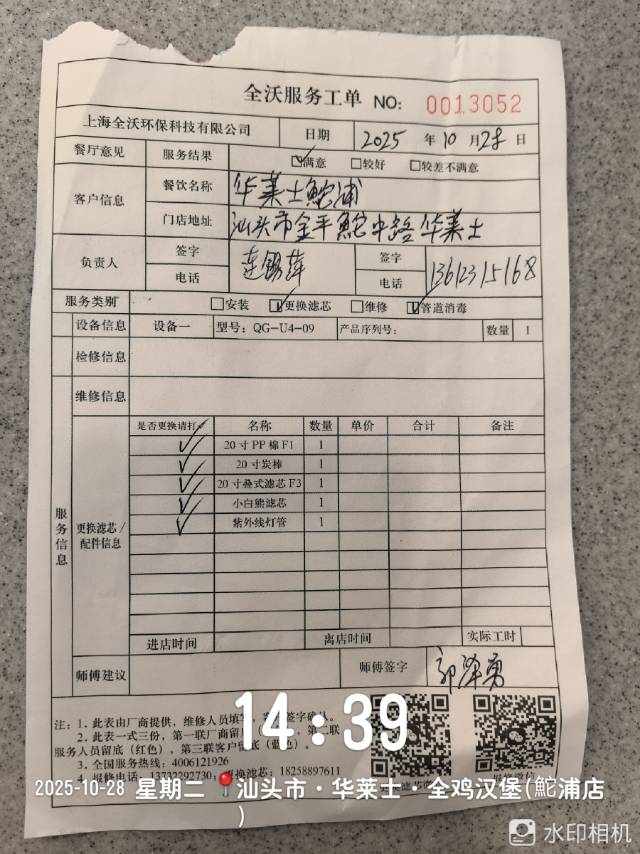 全沃服务工单 NO: 0013052
上海全沃环保科技有限公司 日期 2025 年 10 月 28 日
餐厅意见 服务结果 ☑满意 □较好 □较差不满意
客户信息 餐饮名称 华莱士鮀浦
门店地址 汕头市金平鮀中路华莱士
负责人 签字 连锡萍 签字
电话 电话 13612315168
服务类别 □安装 ☑更换滤芯 □维修 ☑管道消毒
设备信息 设备一 型号: QG-U4-09 产品序列号: 数量 1
检修信息
维修信息
服务信息
更换滤芯/配件信息
是否更换请打✓ 名称 数量 单价 合计 备注
✓ 20寸PP棉F1 1
✓ 20寸炭棒 1
✓ 20寸叠式滤芯F3 1
✓ 小白熊滤芯 1
✓ 紫外线灯管 1
进店时间 离店时间 实际工时
师傅建议 师傅签字 郭泽勇
注: 1. 此表由厂商提供, 维修人员填写, 签字确认。
2. 此表一式三份, 第一联厂商留
服务人员留底(红色), 第三联客户留底(蓝色)。
3. 全国服务热线: 4006121926
4. 报修电话: 13732292730 更换滤芯: 18258897611
14:39
2025-10-28 星期二 汕头市·华莱士·全鸡汉堡(鮀浦店
)
水印相机